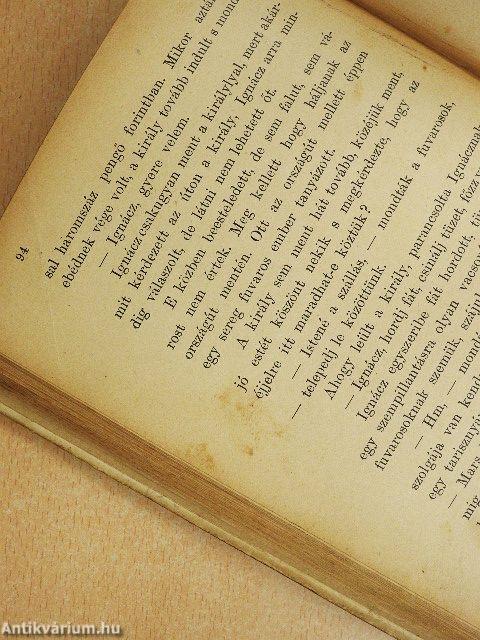 94
sal háromszáz pengő forintban. Mikor aztán
ebédnek vége volt, a király tovább indult s
— Ignácz, gyere velem.
Ignácz csakugyan ment a királylyal, mert akár-
mit kérdezett az úton a király, Ignácz arra min-
dig válaszolt, de látni nem lehetett őt.
E közben beesteledett, de sem falut, sem vá-
rost nem értek. Meg kellett hogy háljanak az
országút mentén. Ott az országút mellett éppen
egy sereg fuvaros ember tanyázott.
A király sem ment hát tovább, közéjük ment,
jó estét köszönt nekik s megkérdezte, hogy az
éjjelre itt maradhat-e köztük?
— Istené a szállás, — mondták a fuvarosok,
— telepedj le közöttünk.
Ahogy leült a király, parancsolta Ignácznak
— Ignácz, hordj fát, csinálj tüzet,
Ignácz egyszeribe fát hordott,
egy szempillantásra olyan
fuvarosoknak szemük,
— Hm, —
szolgája van
egy
— Mars
mig
Antikvárium.hu